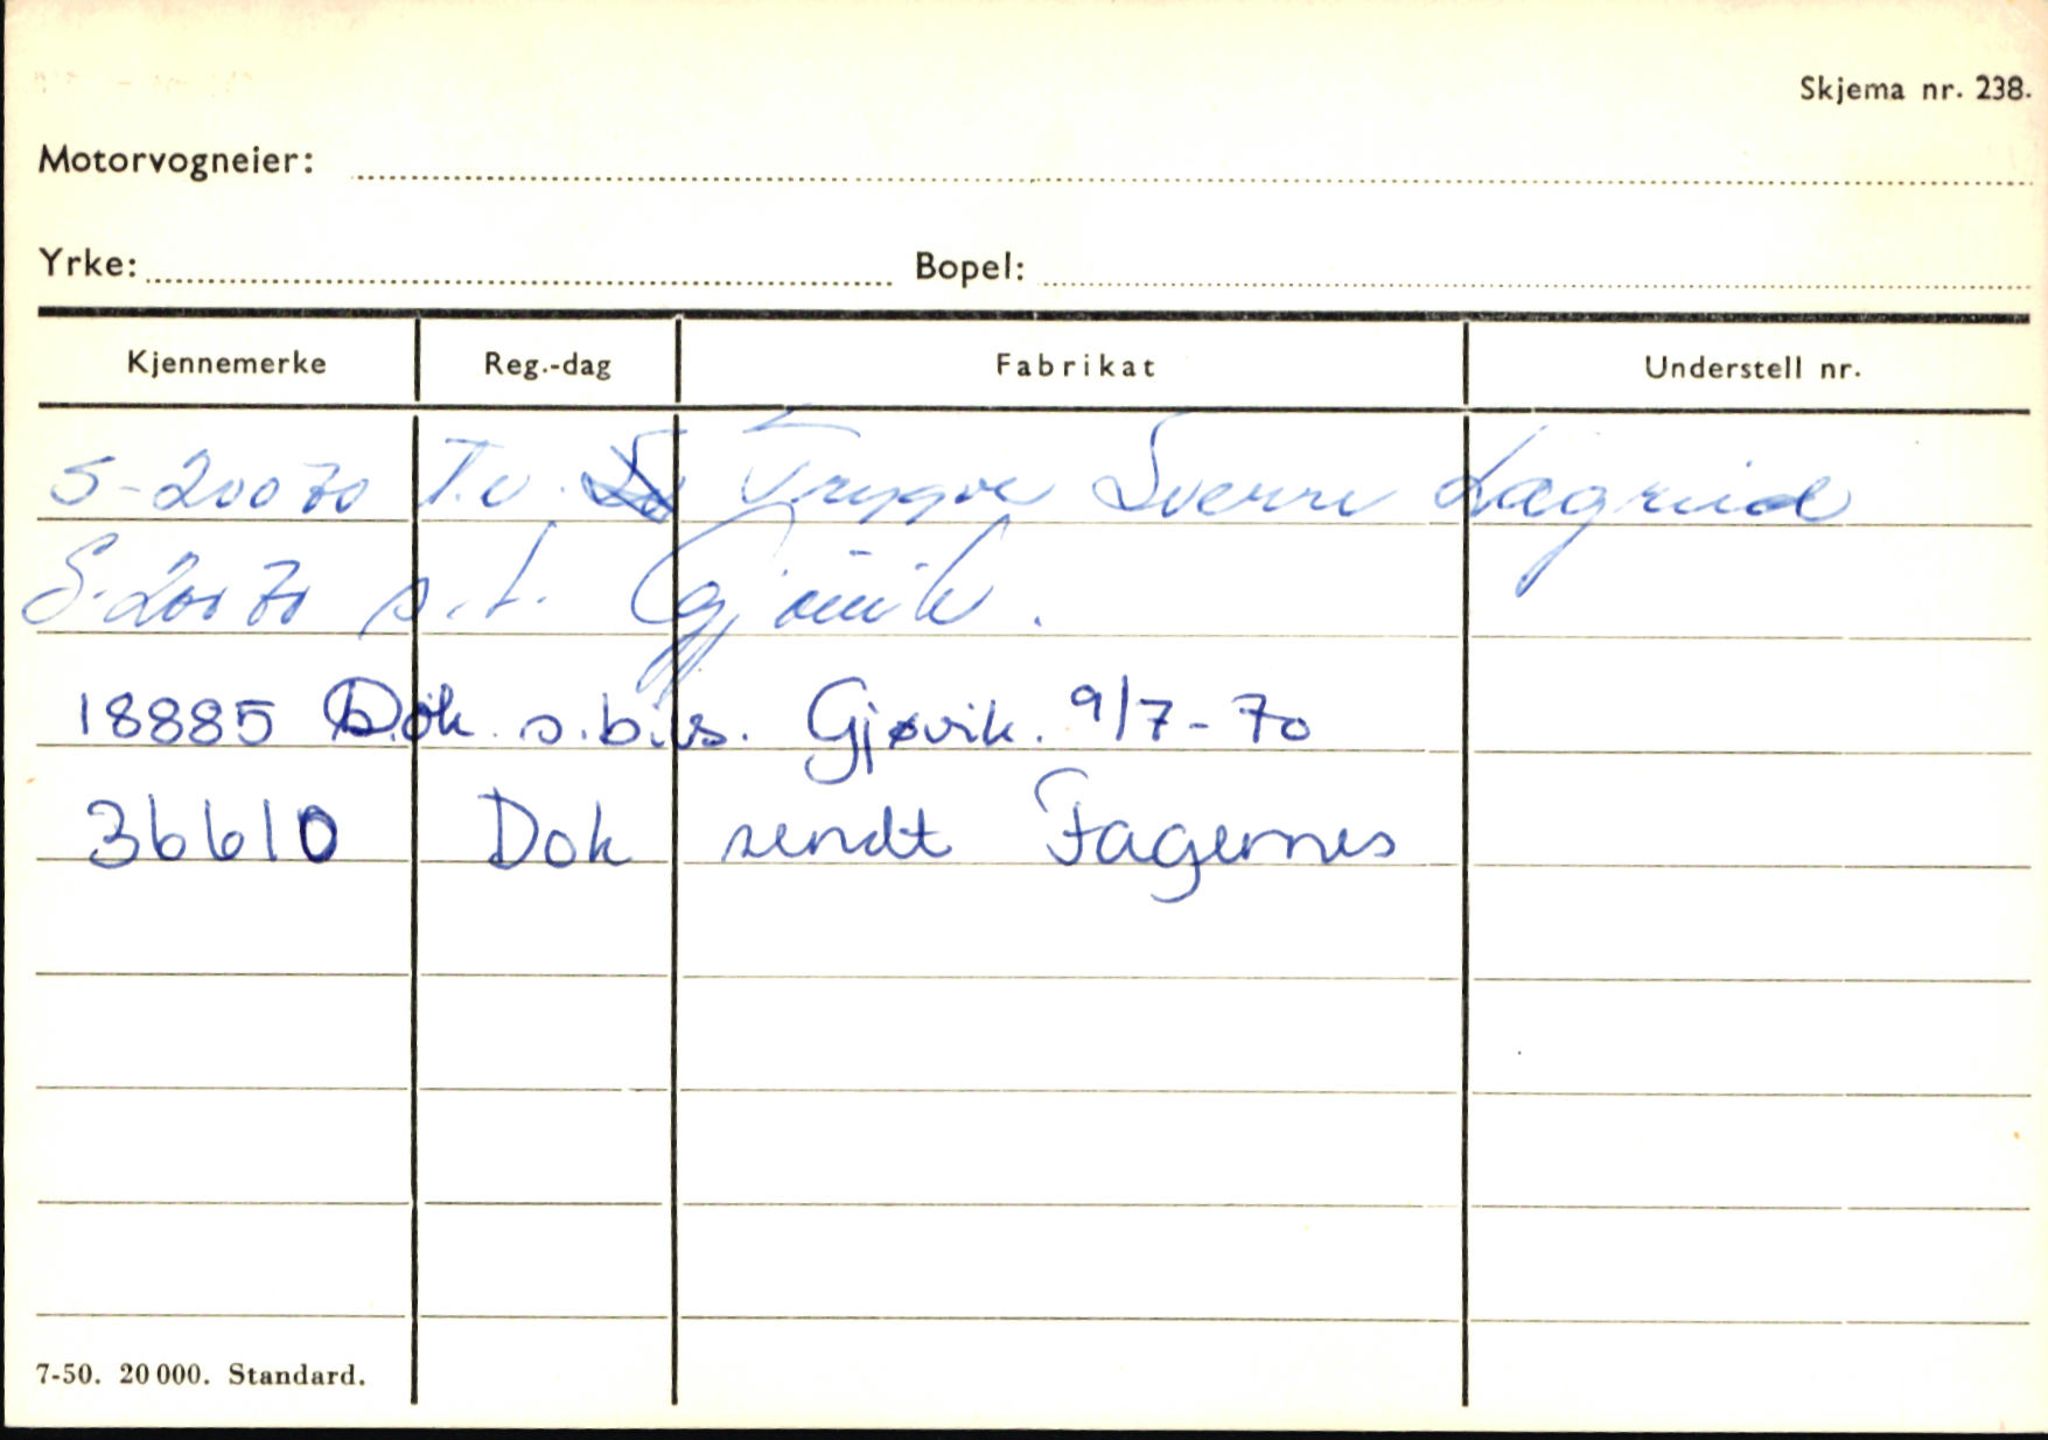 Skjema nr. 238.
Motorvogneier:
Yrke: Bopel:
Kjennemerke Reg.-dag Fabrikat Understell nr.
S-20070 T.v. Trygve Sverre Lægreid
S-20070 s.t. Gjövik.
18885 Dok. s.b.s. Gjøvik. 9/7-70
36610 Dok sendt Fagernes
7-50. 20 000. Standard.